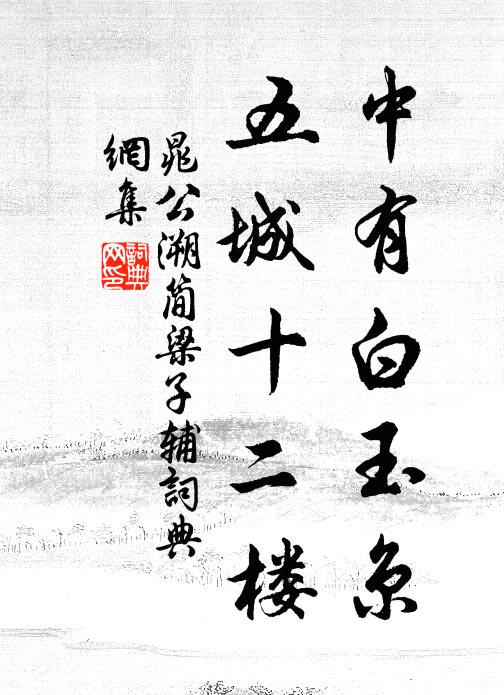 中有白玉京
五城十二楼
晁公溯简梁子辅詞典
網集
詞典
网印